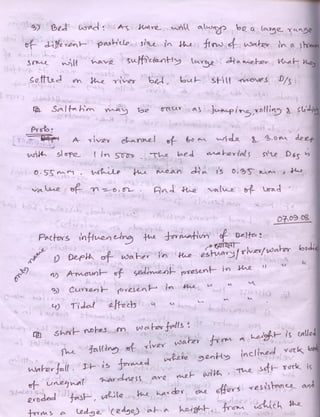 3) Bed load: As there will always be a large range
of different particle size in the flow of water in a stream
some will have sufficiently large diameter that they
settled on the river bed, but still moves D/s.
Saltation may be occur as jumping, rolling & sliding
Prob:
A river channel of 60 m wide & 3.0m deep
with slope 1 in 5000. The bed materials size D65 is
0.55 mm. while the mean dia is 0.35 mm, the
value of n = 0.02. Find the value of load
07.09.08
Factors influencing the formation of Delta:
1) Depth of water in the estuary/river/water bodies
2) Amount of sediment present in the " "
3) Current present in the " "
4) Tidal effects " " "
Short notes on waterfalls:
The falling of river water from a height is called
waterfall. It is formed where gently inclined rock beds
of unequal hardness are met with. The soft rock is
eroded fast, while the harder one offers resistance and
forms a ledge (edge) at a height, from which the